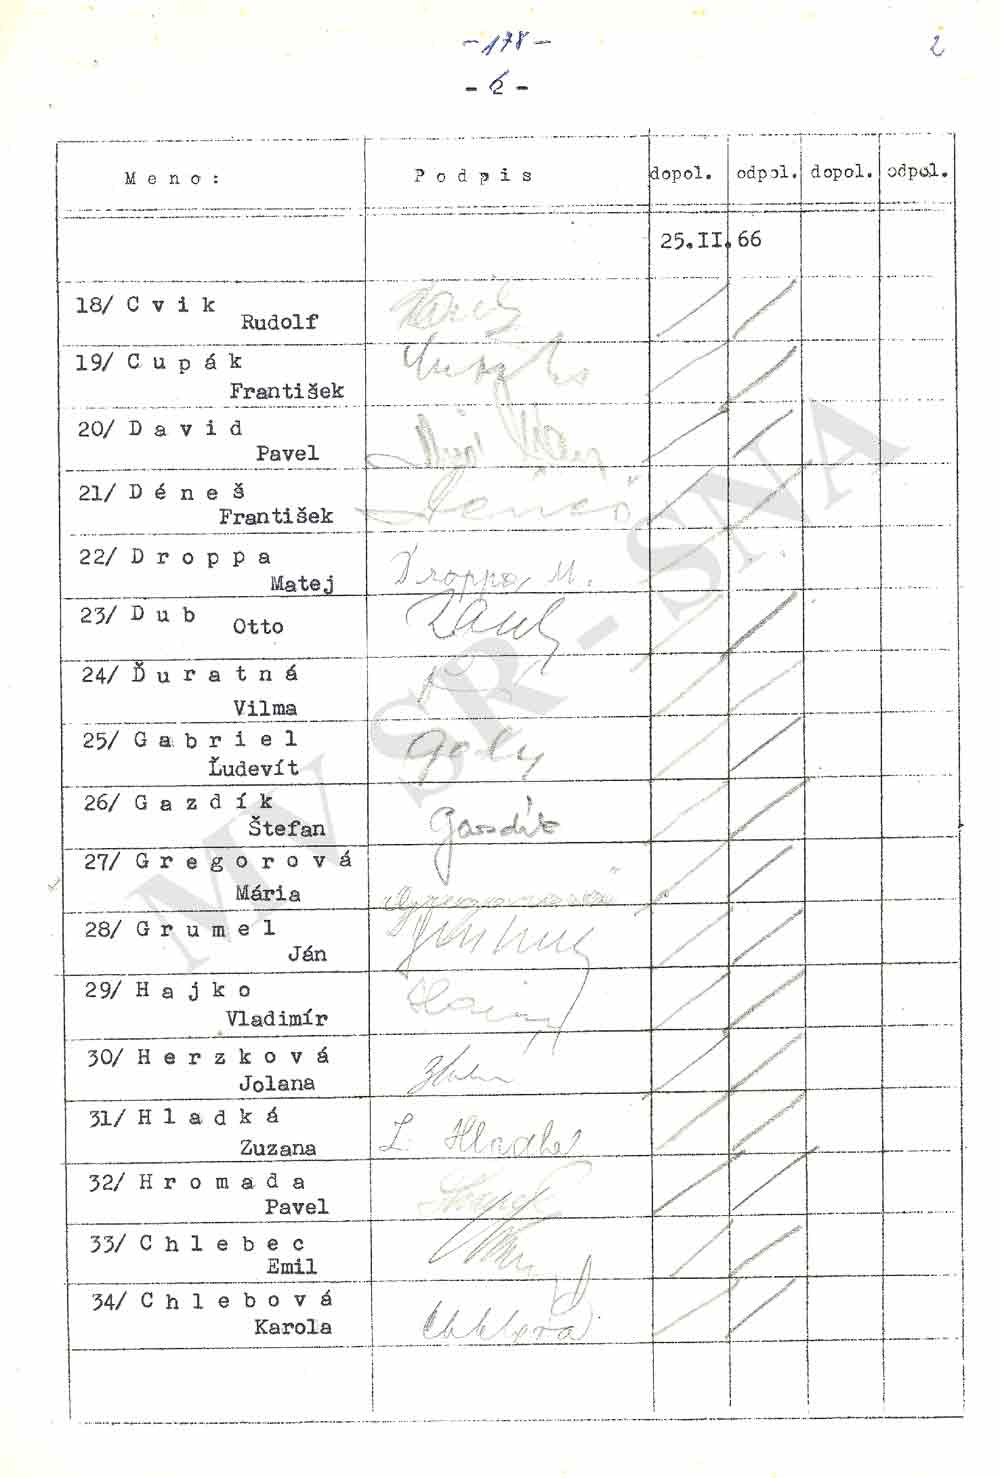 -178-
2
- 2 -
Meno: Podpis dopol. odpol. dopol. odpol.
25.II.66
18/ Cvik
Rudolf
19/ Cupák
František
20/ David
Pavel
21/ Déneš
František
22/ Droppa
Matej Droppa M.
23/ Dub
Otto
24/ Ďuratná
Vilma
25/ Gabriel
Ľudevít
26/ Gazdík
Štefan Gazdík
27/ Gregorová
Mária Gregorová
28/ Grumel
Ján
29/ Hajko
Vladimír
30/ Herzková
Jolana
31/ Hladká
Zuzana
32/ Hromada
Pavel
33/ Chlebec
Emil
34/ Chlebová
Karola
MV SR - SNA